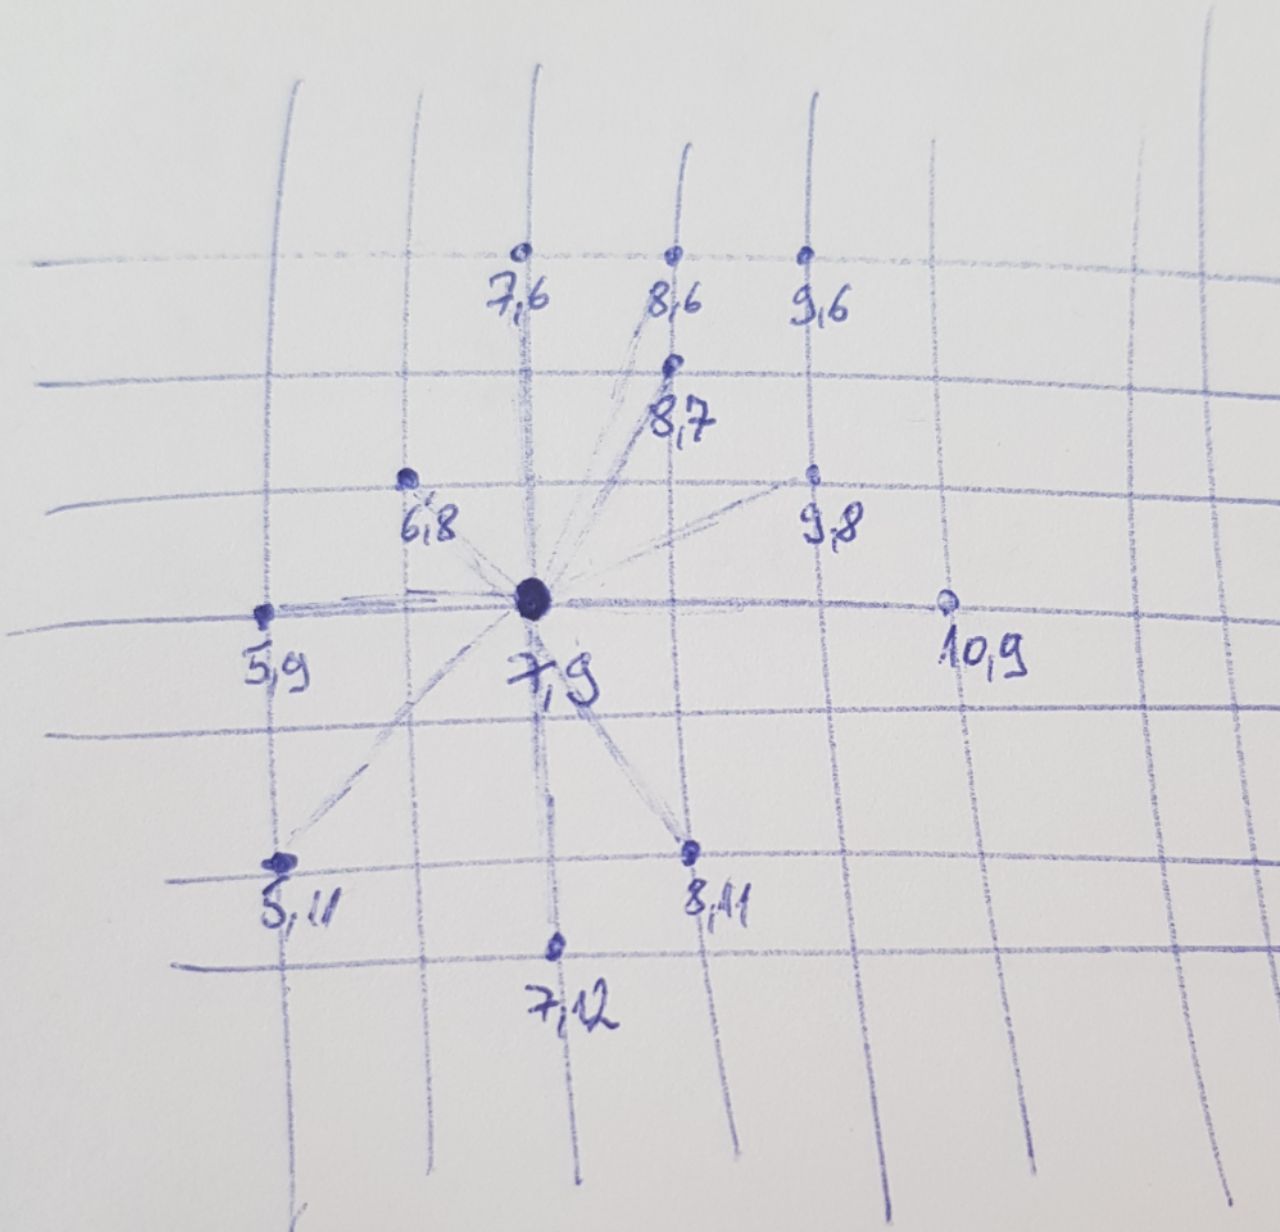 7,6 8,6 9,6
8,7
6,8 9,8
5,9 7,9 10,9
5,11 8,11
7,12